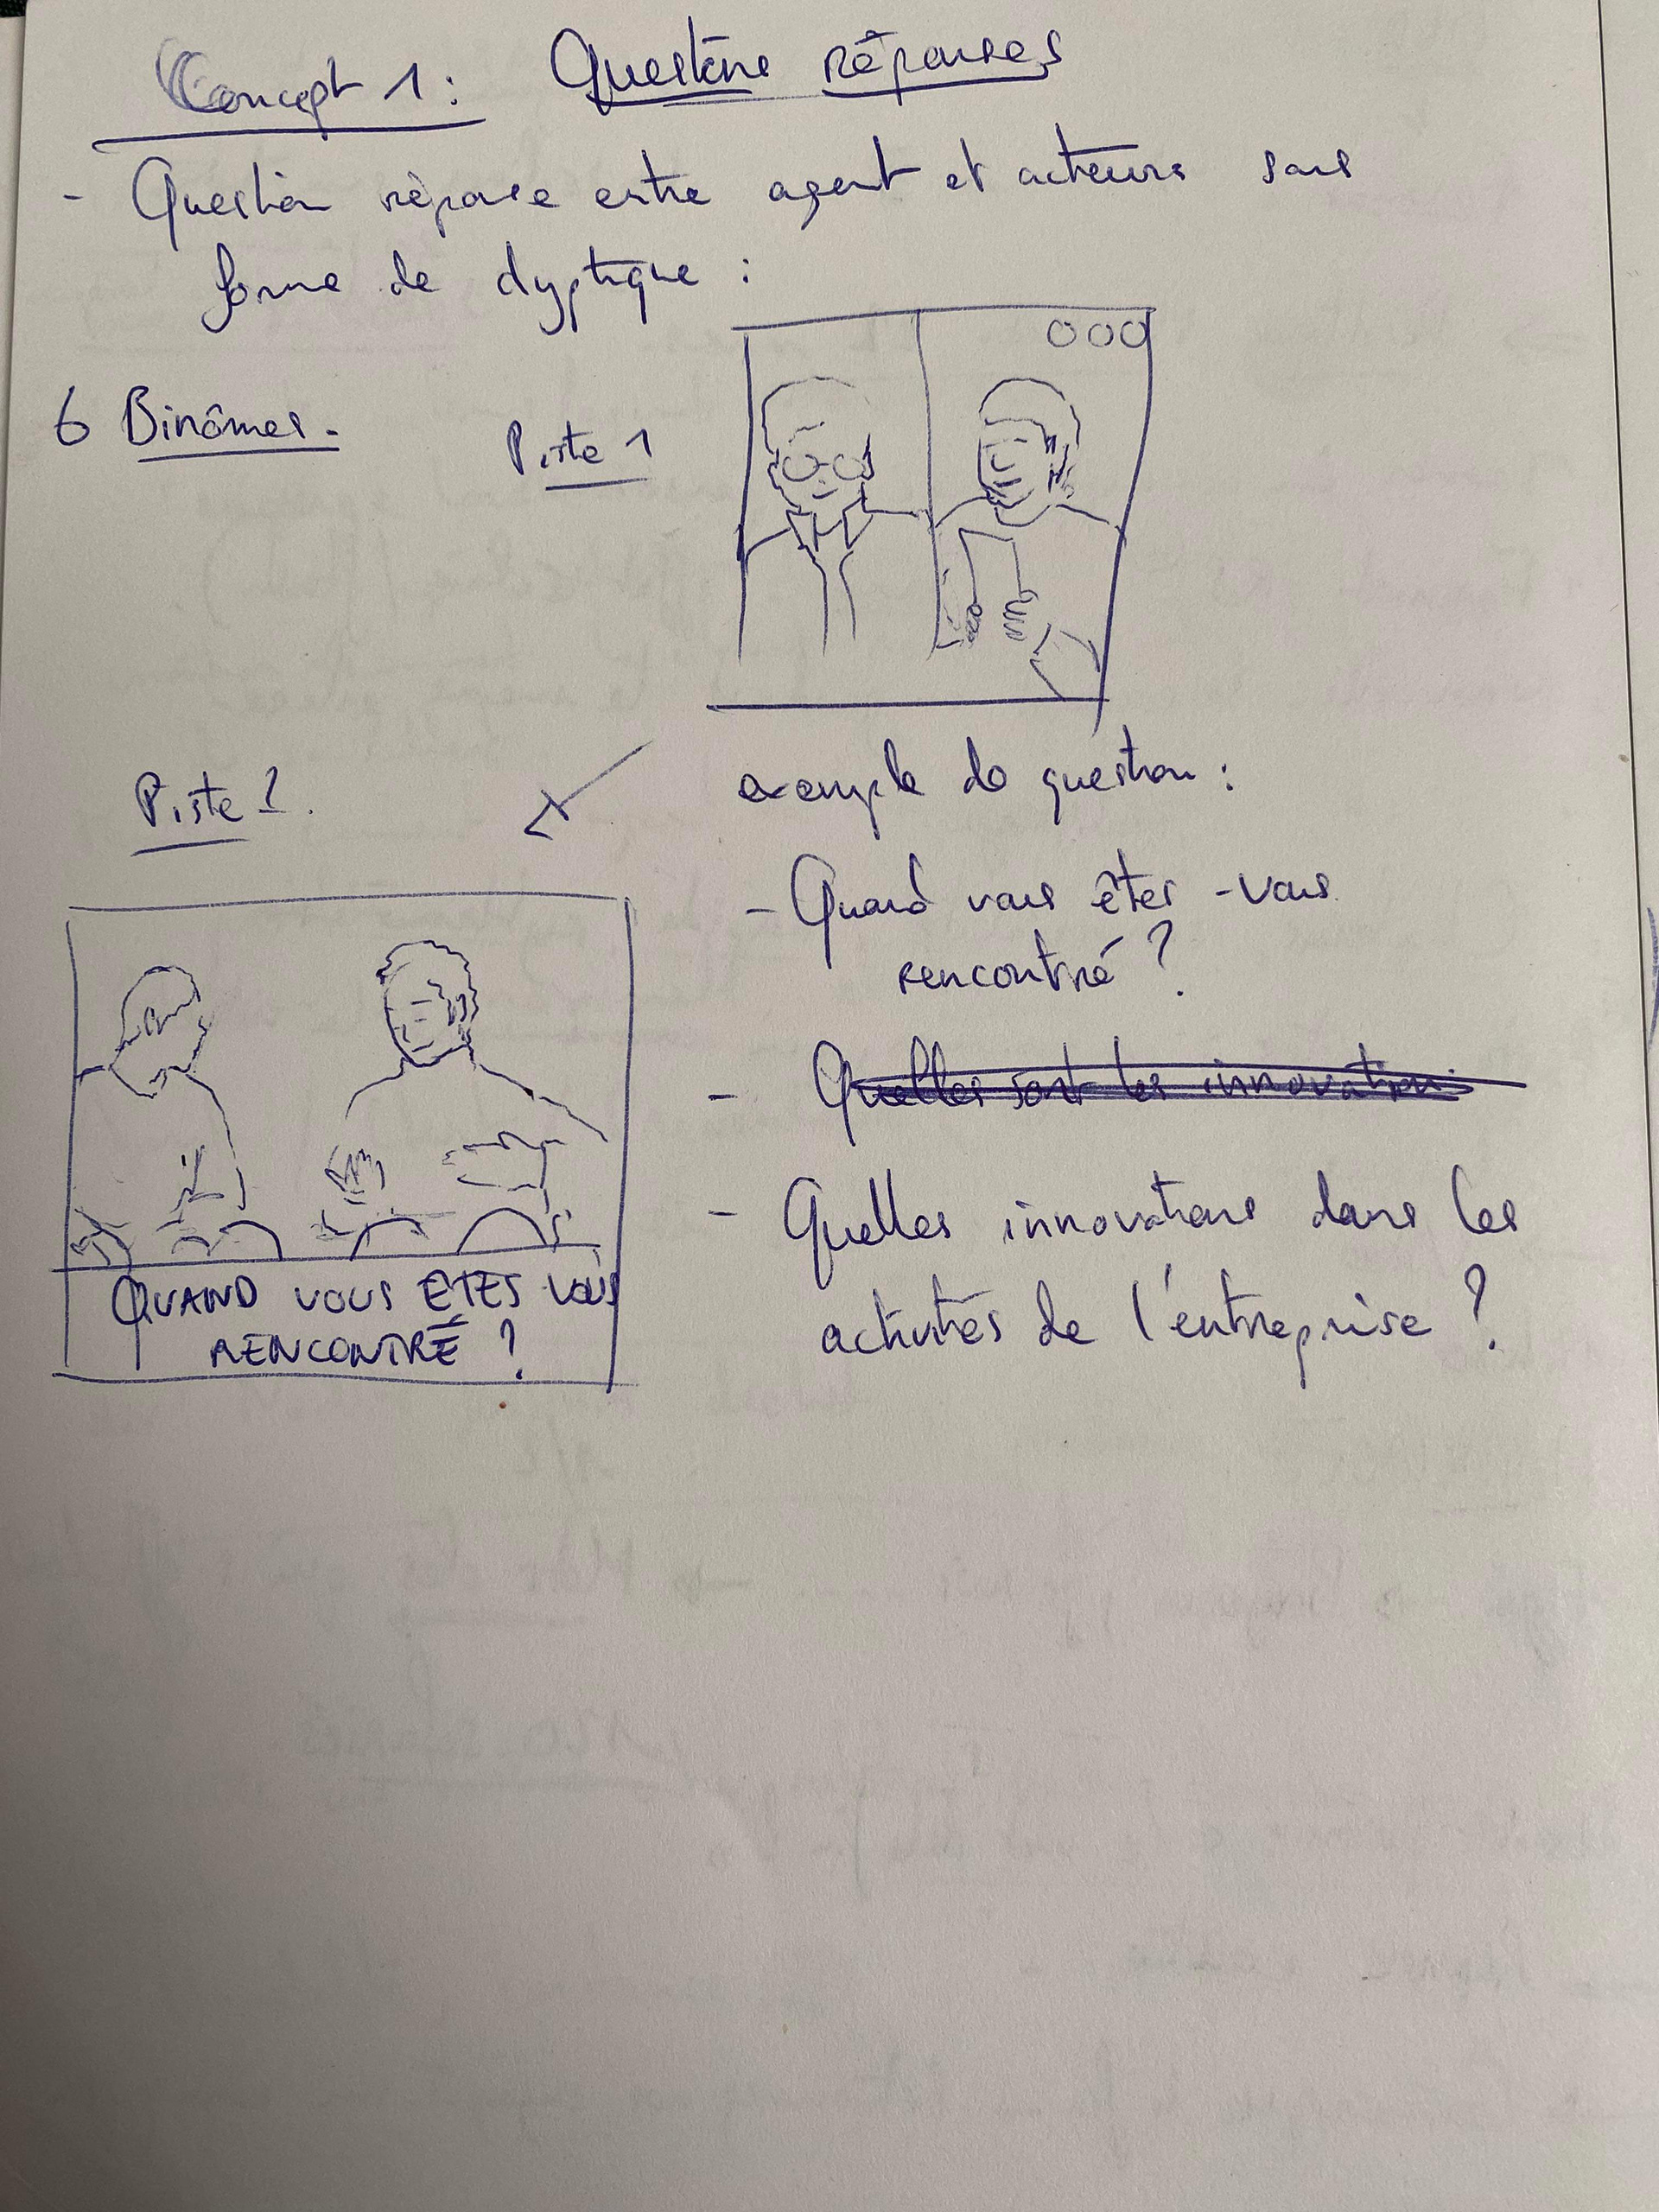 Concept 1 : Questions réponses
- Question réponse entre agent et acteurs sous
forme de dyptique :
6 Binômes.
Piste 1
OOO
Piste 2.
exemple de question :
- Quand vous êtes-vous
rencontré ?
- Quelles sont les innovations
- Quelles innovations dans les
activités de l'entreprise ?
QUAND VOUS ÊTES VOUS
RENCONTRÉ ?